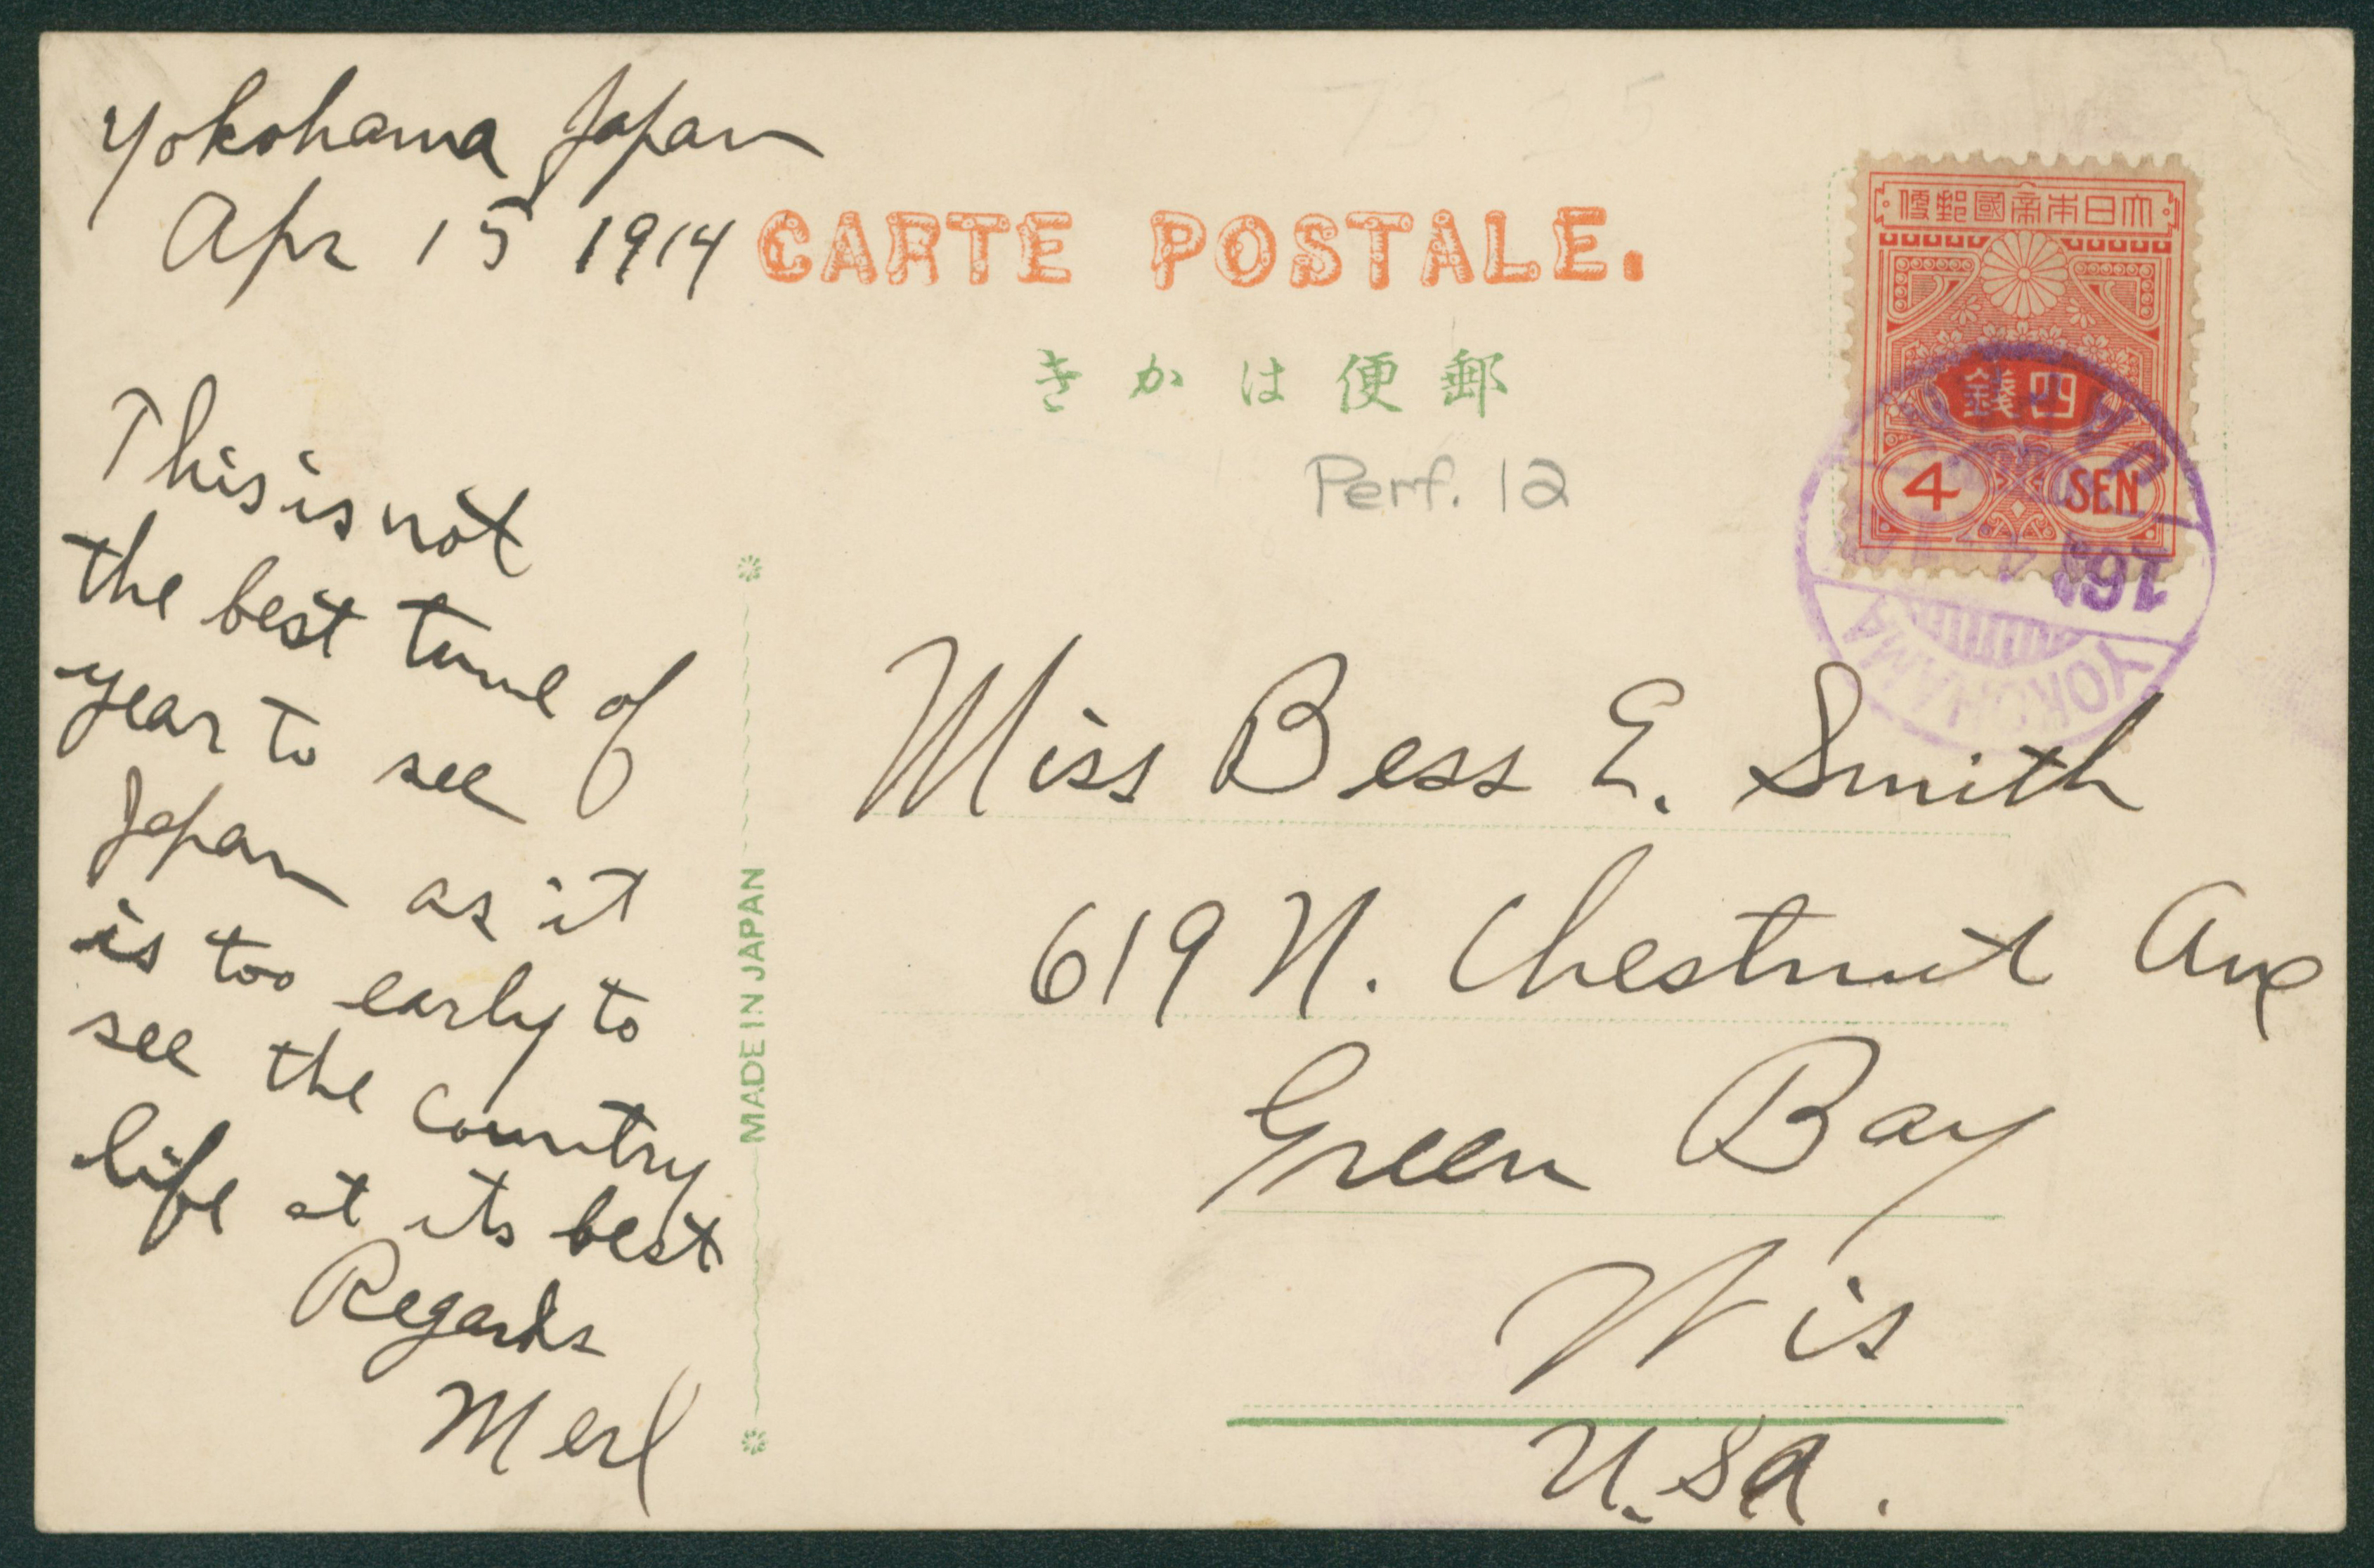 Yokohama Japan
Apr 15 1914
This is not
the best time of
year to see
Japan as it
is too early to
see the country
life at its best
Regards
Merl
CARTE POSTALE.
きかは便郵
Perf. 12
MADE IN JAPAN
便郵國帝本日大
錢四
4 SEN
JAPAN
16
4
YOKOHAMA
Miss Bess E. Smith
619 N. Chestnut Ave
Green Bay
Wis
U.S.A.